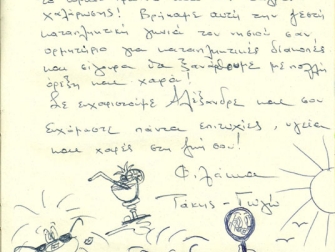 χαλάρωσης! Βρήκαμε αυτή την ζεστή
καταπληκτική γωνιά του νησιού σαν
ορμητήριο για καταπληκτικές διακοπές
και σίγουρα θα ξανάρθουμε με πολλή
όρεξη και χαρά!
Σε ευχαριστούμε Αλέξανδρε και σου
ευχόμαστε πάντα επιτυχίες, υγεία
και χαρές στη ζωή σου!
Φιλάκια
Τάκης - Γωγώ